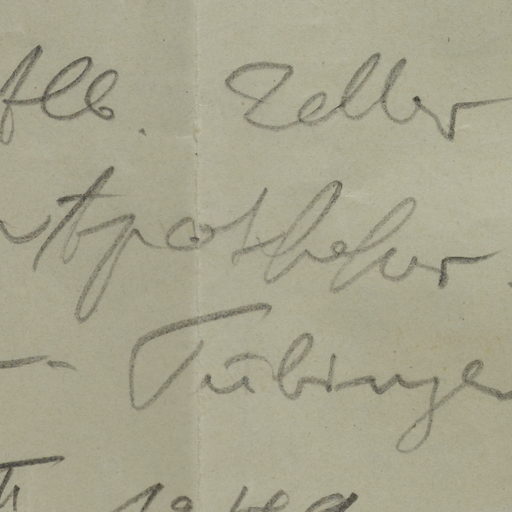 Alb. Zeller
Apotheker
- Tübingen